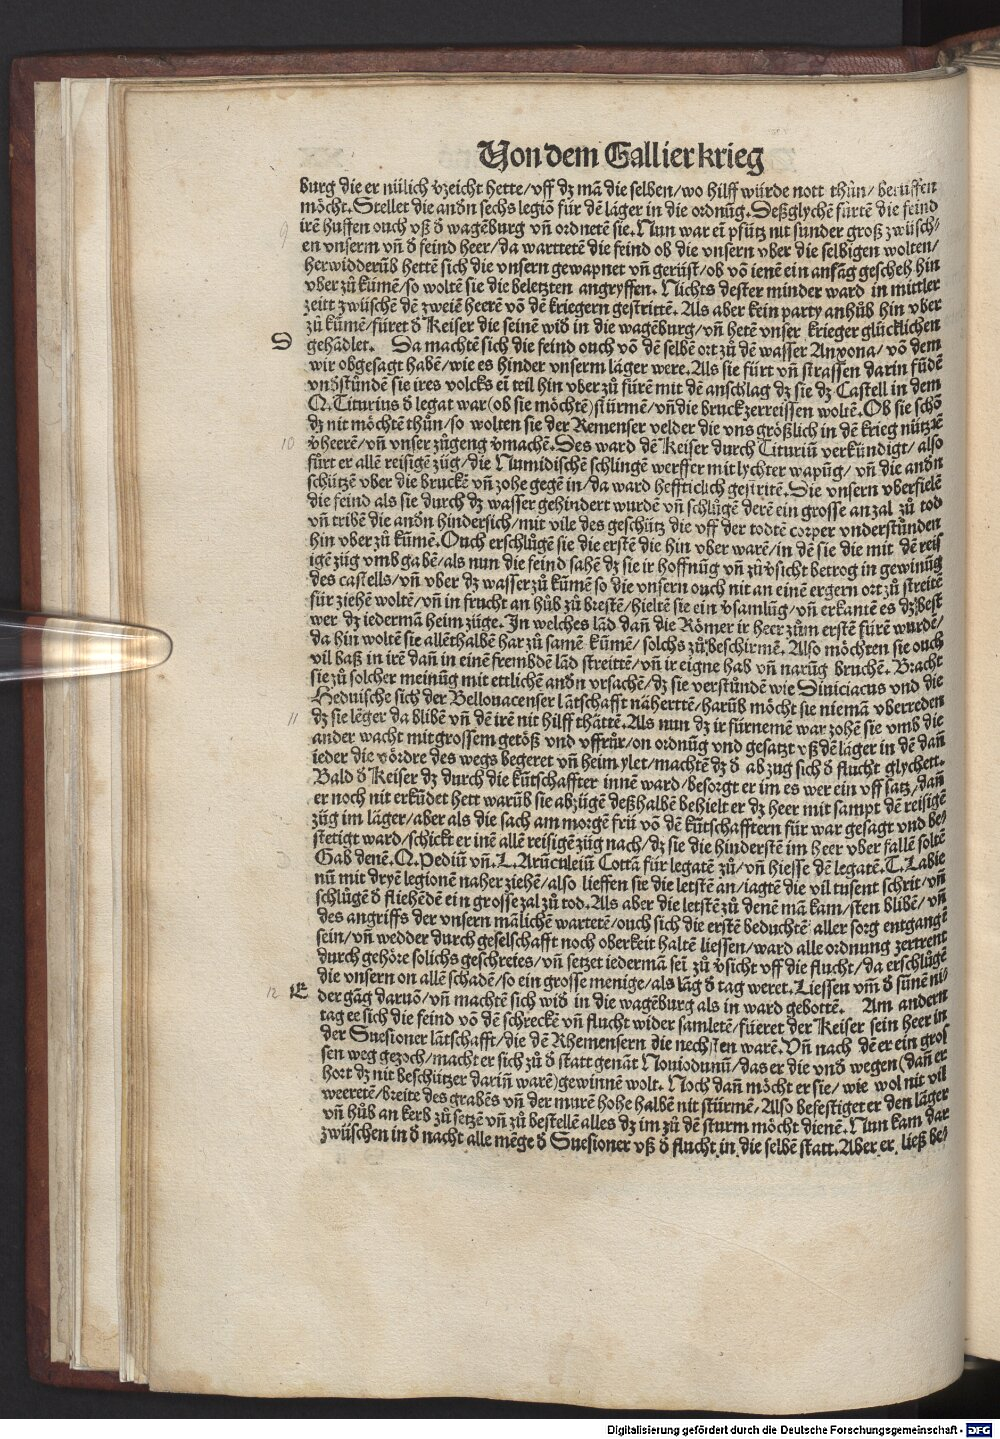 Von dem Gallier krieg
burg die er nülich v̓zeicht hette/vff dz mā die selben/wo hilff würde nott thůn/berüffen
möcht. Stellet die andn̄ sechs legiō für dē läger in die ordnūg. Deßglychē fürtē die feind
9 irē huffen ouch vß d̓ wagēburg vn̄ ordnetē sie. Nun war ei pfütz nit sunder groß zwüsch⸗
en vnserm vn̄ d̓ feind heer/da wartetē die feind ob die vnsern vber die selbigen wolten/
herwidderūb hettē sich die vnsern gewapnet vn̄ gerüst/ob vō ienē ein anfāg gescheh hin
vber zů kūmē/so woltē sie die beletzten angryffen. Nichts dester minder ward in mittler
zeitt zwüschē dē zweiē heerē vō dē kriegern gestrittē. Als aber kein party anhůb hin vber
zů kūmē/füret d̓ Keiser die seinē wid̓ in die wagēburg/vn̄ hetē vnser krieger glücklichen
D gehādlet. Da machtē sich die feind ouch vō dē selbē ort zů dē wasser Anxona/vō dem
wir obgesagt habē/wie es hinder vnserm läger were. Als sie fürt vn̄ strassen darin fūdē
vnd̓stůndē sie ires volcks ei teil hin vber zů fürē mit dē anschlag dz sie dz Castell in dem
Q. Titurius d̓ legat war (ob sie möchtē) stürmē/vn̄ die bruck zerreissen woltē. Ob sie schō
dz nit möchtē thůn/so wolten sie der Remenser velder die vns größlich in dē krieg nütztē
10 v̓heerē/vn̄ vnser zůgeng v̓machē. Des ward dē Keiser durch Tituriū verkündigt/also
fürt er allē reisigē züg/die Numidischē schlingē werffer mit lychter wapūg/vn̄ die andn̄
schützē vber die bruckē vn̄ zohe gegē in/da ward heffticlich gestrittē. Die vnsern vberfielē
die feind als sie durch dz wasser gehindert wurdē vn̄ schlůgē derē ein grosse anzal zů tod
vn̄ tribē die andn̄ hindersich/mit vile des geschütz die vff der todtē corper vnderstůnden
hin vber zů kūmē. Ouch erschlůgē sie die erstē die hin vber warē/in dē sie die mit dē reis
igē züg vmbgabē/als nun die feind sahē dz sie ir hoffnūg vn̄ zův̓sicht betrog in gewinūg
des castells/vn̄ vber dz wasser zů kūmē so die vnsern ouch nit an einē ergern ort zů streitē
für ziehē woltē/vn̄ in frucht an hůb zů brestē/hieltē sie ein v̓samlūg/vn̄ erkantē es dz best
wer dz iedermā heim züge. In welches lād dan̄ die Römer ir heer zům erstē fürē wurdē/
da hin woltē sie allēthalbē har zů samē kūmē/solchs zů beschirmē. Also möchten sie ouch
vil baß in irē dan̄ in einē frembdē lād streittē/vn̄ ir eigne hab vn̄ narūg bruchē. Bracht
sie zů solcher meinūg mit ettlichē andn̄ vrsachē/dz sie verstůndē wie Diniciacus vnd die
Hednische sich der Bellouacenser lātschafft nähertē/harūb möcht sie niemā vberreden
11 dz sie lēger da blibē vn̄ dē irē nit hilff thättē. Als nun dz ir fürnemē war zohē sie vmb die
ander wacht mit grossem getöß vnd vffrůr/on ordnūg vnd gesatzt vß dē läger in dē dan̄
ieder die vördre des wegs begeret vn̄ heim ylet/machtē dz d̓ abzug sich d̓ flucht glychett.
Bald d̓ Keiser dz durch die kūtschaffter innē ward/besorgt er im es wer ein vff satz/dan̄
er noch nit erkūdet hett warūb sie abzügē deßhalbē behielt er dz heer mit sampt dē reisigē
züg im läger/aber als die sach am morgē frü vō dē kūtschafftern für war gesagt vnd be⸗
stetigt ward/schickt er inē allē reisigē züg nach/dz sie die hinderstē im heer vber fallē soltē
Gab denē. Q. Pediū vn̄. L. Arūculeiū Cottā für legatē zů/vn̄ hiesse dē legatē. T. Labie
nū mit dryē legionē naher ziehē/also lieffen sie die letstē an/iagtē die vil tusent schrit/vn̄
schlůgē d̓ fliehēdē ein grosse zal zů tod. Als aber die letstē zů denē mā kam/sten blibē/vn̄
des angriffs der vnsern mālichē wartetē/ouch sich die erstē beduchtē aller sorg entgangē
sein/vn̄ wedder durch geselschafft noch oberkeit haltē liessen/ward alle ordnung zertrent
durch gehöre solichs geschreies/vn̄ setzet iedermā sei zů v̓sicht vff die flucht/da erschlůgē
die vnsern on allē schadē/so ein grosse menige/als lāg d̓ tag weret. Liessen vm̄ d̓ sūnē ni⸗
12 E der gāg daruō/vn̄ machtē sich wid̓ in die wagēburg als in ward gebottē. Am andern
tag ee sich die feind vō dē schreckē vn̄ flucht wider samletē/füeret der Keiser sein heer in
der Suesioner lātschafft/die dē Rhemensern die nechsten warē. Vn̄ nach dē er ein gros
sen weg gezoch/macht er sich zů d̓ statt genāt Nouiodunū/das er die vnd̓ wegen (dan̄ er
hort dz nit beschützer darin̄ warē) gewinnē wolt. Noch dan̄ möcht er sie/wie wol nit vil
weeretē/breite des grabēs vn̄ der murē hohe halbē nit stürmē/Also befestiget er den läger
vn̄ hůb an kerb zů setzē vn̄ zů bestellē alles dz im zů dē sturm möcht dienē. Nun kam dar
zwüschen in d̓ nacht alle mēge d̓ Suesioner vß d̓ flucht in die selbē statt. Aber er ließ be⸗
Digitalisierung gefördert durch die Deutsche Forschungsgemeinschaft - DFG